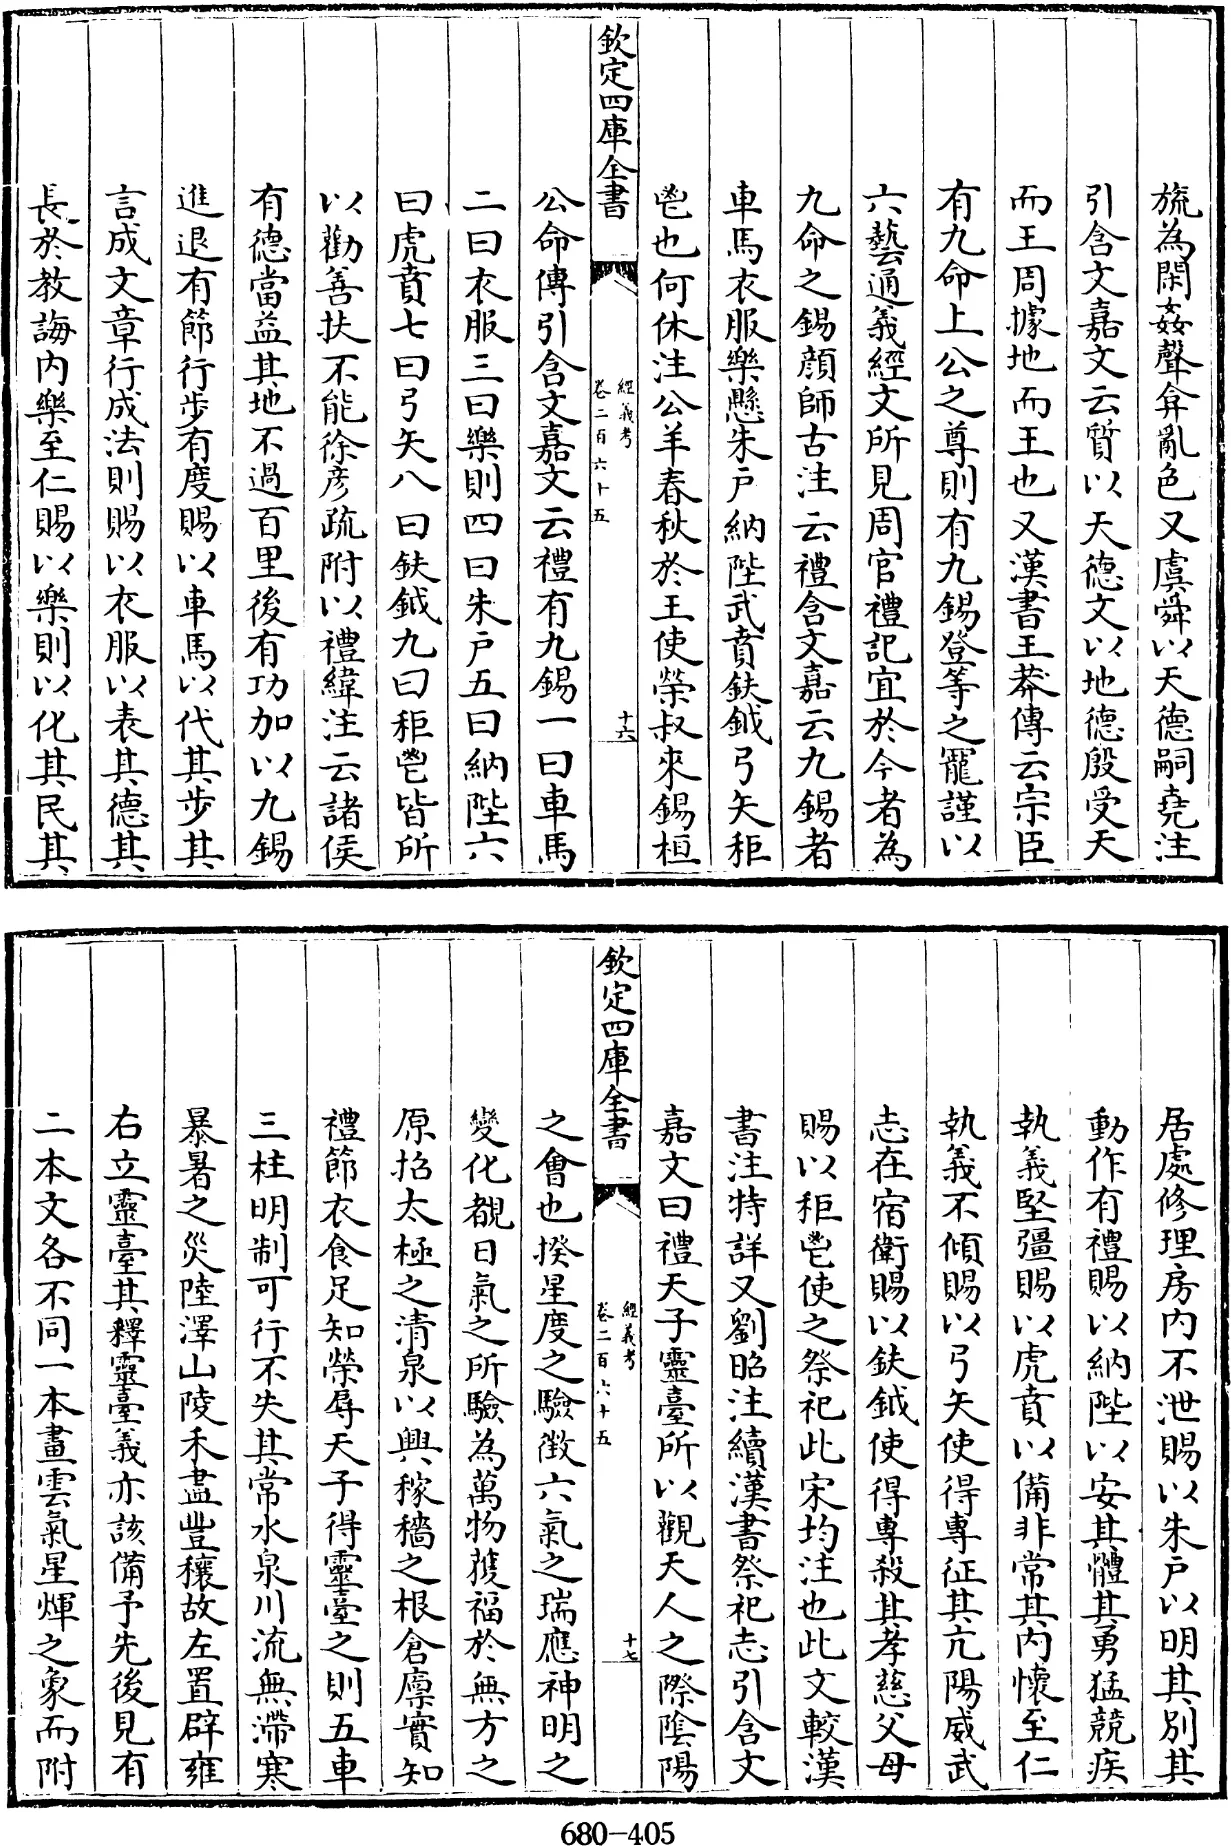 旒為閑姦聲弇亂色又虞舜以天德嗣堯注
引含文嘉文云質以天德文以地德殷受天
而王周據地而王也又漢書王莽傳云宗臣
有九命上公之尊則有九錫登等之寵謹以
六藝通義經文所見周官禮記宜於今者為
九命之錫顔師古注云禮含文嘉云九錫者
車馬衣服樂懸朱戶納陛武賁鈇鉞弓矢秬
鬯也何休注公羊春秋於王使榮叔來錫桓
欽定四庫全書
經義考
卷二百六十五
十六
公命傳引含文嘉文云禮有九錫一曰車馬
二曰衣服三曰樂則四曰朱戶五曰納陛六
曰虎賁七曰弓矢八曰鈇鉞九曰秬鬯皆所
以勸善扶不能徐彦疏附以禮緯注云諸侯
有德當益其地不過百里後有功加以九錫
進退有節行步有度賜以車馬以代其步其
言成文章行成法則賜以衣服以表其德其
長於教誨内樂至仁賜以樂則以化其民其
居處修理房内不泄賜以朱戶以明其别其
動作有禮賜以納陛以安其體其勇猛競疾
執義堅彊賜以虎賁以備非常其内懷至仁
執義不傾賜以弓矢使得專征其亢陽威武
志在宿衛賜以鈇鉞使得專殺其孝慈父母
賜以秬鬯使之祭祀此宋均注也此文較漢
書注特詳又劉昭注續漢書祭祀志引含文
嘉文曰禮天子靈臺所以觀天人之際陰陽
欽定四庫全書
經義考
卷二百六十五
十七
之會也揆星度之驗徵六氣之瑞應神明之
變化覩日氣之所驗為萬物獲福於無方之
原招太極之清泉以興稼穡之根倉廪實知
禮節衣食足知榮辱天子得靈臺之則五車
三柱明制可行不失其常水泉川流無滯寒
暴暑之災陸澤山陵禾盡豐穰故左置辟雍
右立靈臺其釋靈臺義亦該備予先後見有
二本文各不同一本畫雲氣星煇之象而附
680-405